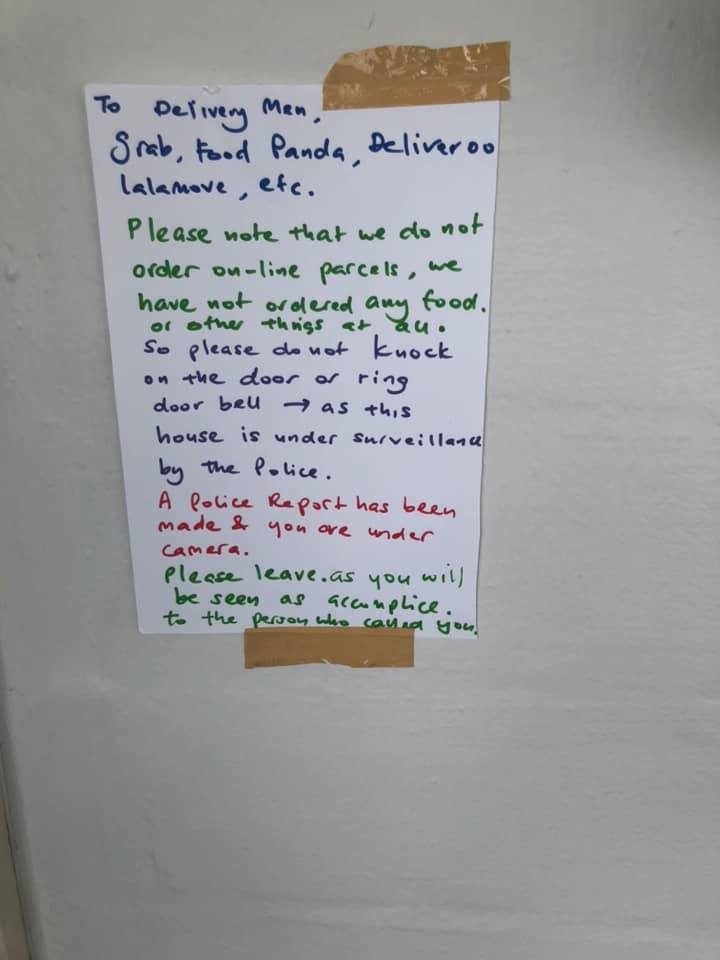 To Delivery Men,
Grab, Food Panda, Deliveroo
lalamove, etc.
Please note that we do not
order on-line parcels, we
have not ordered any food.
or other things at all.
So please do not knock
on the door or ring
door bell → as this
house is under surveillance
by the Police.
A Police Report has been
made & you are under
camera.
Please leave. as you will
be seen as accomplice.
to the person who called you.